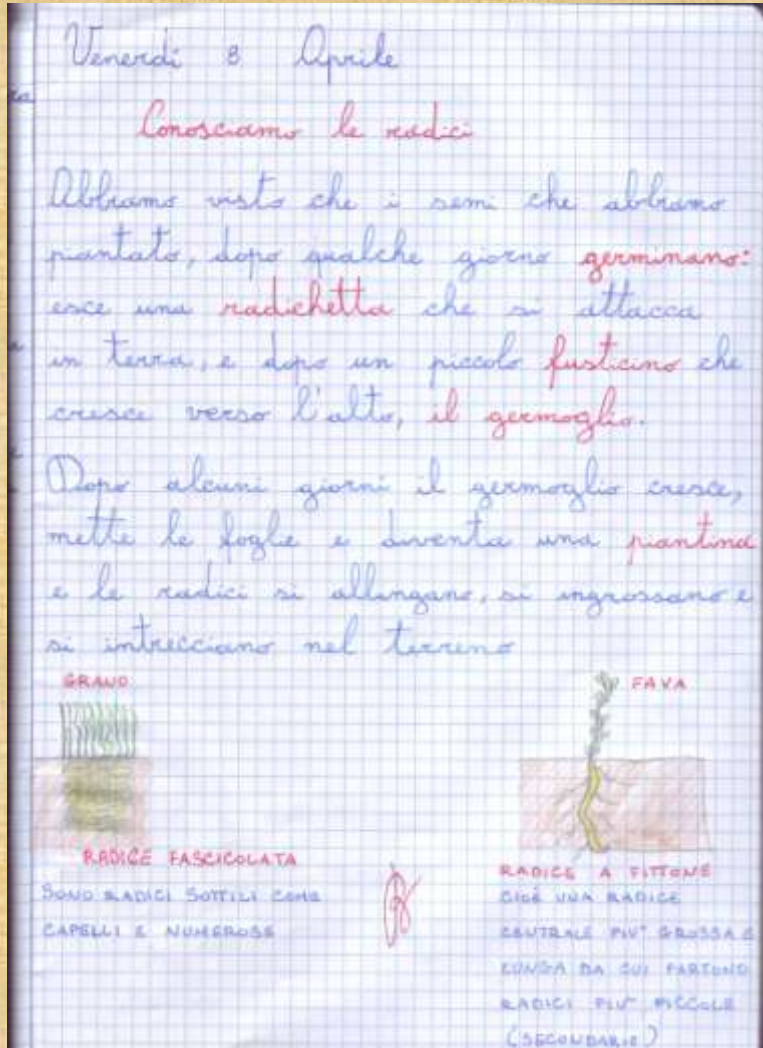 Venerdi 8 Aprile
Conosciamo le radici
Abbiamo visto che i semi che abbiamo
piantato, dopo qualche giorno germinano:
esce una radichetta che si attacca
in terra, e dopo un piccolo fusticino che
cresce verso l'alto, il germoglio.
Dopo alcuni giorni il germoglio cresce,
mette le foglie e diventa una piantina
e le radici si allungano, si ingrossano e
si intrecciano nel terreno
GRANO
RADICE FASCICOLATA
SONO RADICI SOTTILI COME
CAPELLI E NUMEROSE
FAVA
RADICE A FITTONE
CIOÈ UNA RADICE
CENTRALE PIU' GROSSA E
LUNGA DA CUI PARTONO
RADICI PIU' PICCOLE
(SECONDARIE)